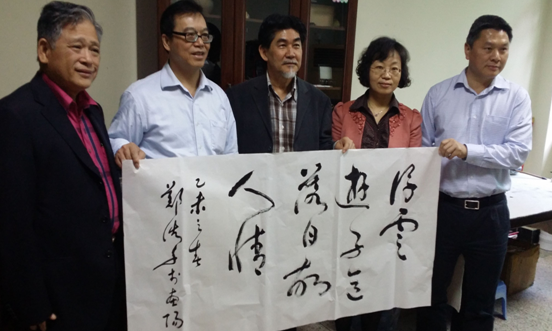 浮雲
遊子意
落日故
人情
乙未之春
鄭 南陽